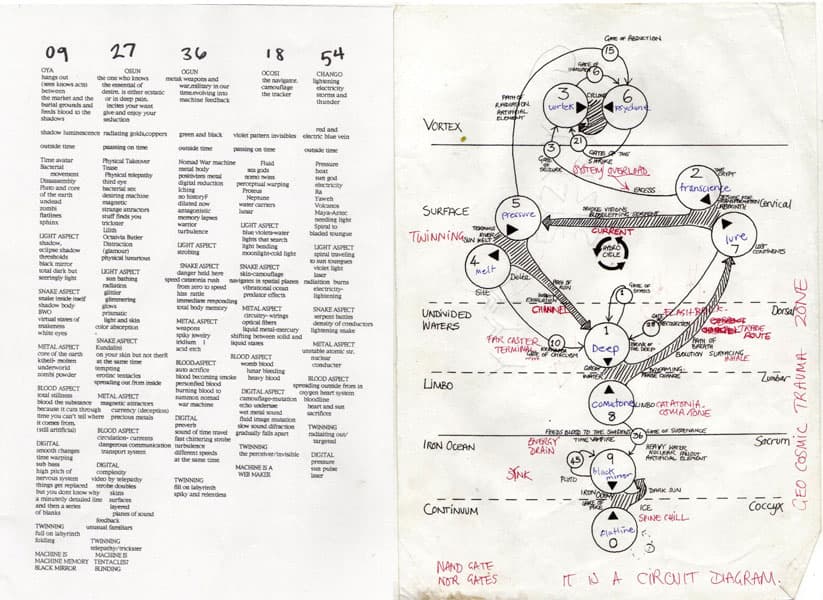 09
OYA
hangs out
(sees knows acts)
between
the market and the
burial grounds and
feeds blood to the
shadows
shadow luminescence
outside time
Time avatar
Bacterial
movement
Disassembly
Pluto and core
of the earth
undead
zombi
flatlines
sphinx
LIGHT ASPECT
shadow,
eclipse shadow
thresholds
black mirror
total dark but
seeringly light
SNAKE ASPECT
snake inside itself
shadow body
BWO
virtual states of
snakeness
white eyes
METAL ASPECT
core of the earth
underworld
zombi powder
BLOOD ASPECT
total stillness
blood the substance
because it cuts through
time you can't tell where
it comes from.
(still artificial)
DIGITAL
smooth changes
time warping
sub bass
high pitch of
nervous system
things get replaced
but you dont know why
a minutely detailed line
and then a series
of blanks
TWINNING
full on labyrinth
folding
MACHINE IS
MACHINE MEMORY
BLACK MIRROR
27
OSUN
the one who knows
the essential of
desire, is either ecstatic
or in deep pain,
incites your want
give and enjoy your
seduction
radiating golds,coppers
passing on time
Physical Takeover
Tease
Physical telepathy
third eye
bacterial sex
desiring machine
magnetic
strange attractors
stuff finds you
trickster
Lilith
Octavia Butler
Distraction
(glamour)
physical luxurious
LIGHT ASPECT
sun bathing
radiation,
glitter
glimmering
glows
prismatic
light and skin
color absorption
SNAKE ASPECT
Kundalini
on your skin but not there
at the same time
tempting
erotic tentacles
spreading out from inside
METAL ASPECT
magnetic attractors
currency (deception)
precious metals
BLOOD ASPECT
circulation- currents
dangerous communication
transport system
DIGITAL
complexity
video by telepathy
strobe doubles
skins
surfaces
layered
planes of sound
feedback
unusual familiars
TWINNING
telepathy/trickster
MACHINE IS
TENTACLES?
BINDING
36
OGUN
metal weapons and
war,military in our
time,evolving into
machine feedback
green and black
outside time
Nomad War machine
metal body
digital reduction
Iching
no history?
diluted now
antagonistic
memory lapses
warrior
turbulence
LIGHT ASPECT
strobing
SNAKE ASPECT
danger held here
speed catatonia rush
from zero to speed
hiss rattle
immediate responding
total body memory
METAL ASPECT
weapons
spiky jewelry
iridium 1
acid etch
BLOOD ASPECT
auto acrifice
blood becoming smoke
personified blood
burning blood to
summon nomad
war machine
DIGITAL
preverb
sound of time travel
fast chittering strobe
turbulence
different speeds
at the same time
TWINNING
fill on labyrinth
spiky and relentless
18
OCOSI
the navigator,
camouflage
the tracker
violet pattern invisibles
passing on time
Fluid
sea gods
nomo twins
perceptual warping
Proteus
Neptune
water carriers
lunar
LIGHT ASPECT
blue violets-water
lights that search
light bending
moonlight-cold light
SNAKE ASPECT
skin-camouflage
navigates in spatial planes
vibrational ocean
predator effects
METAL ASPECT
circuitry-wirings
optical fibers
liquid metal-mercury
shifting between solid and
liquid states
BLOOD ASPECT
womb blood
lunar bleeding
heavy blood
DIGITAL ASPECT
camouflage-mutation
echo undertue
wet metal sound
fluid image mutation
slow sound diffraction
gradually falls apart
TWINNING
the perceiver/invisible
MACHINE IS A
WEB MAKER
54
CHANGO
lightening
electricity
storms and
thunder
red and
electric blue vein
outside time
Pressure
heat
sun god
electricity
Ra
Yaweh
Volcanos
Maya-Aztec
needing light
Spiral to
bladed toungue
LIGHT ASPECT
spiral traveling
to sun tourgues
violet light
laser
radiation burns
electricity-
lightening
SNAKE ASPECT
serpent battles
density of conductors
lightening snake
METAL ASPECT
unstable atomic str.
nuclear
conductor
BLOOD ASPECT
spreading outside from in
oxygen heart system
bloodline
heart and sun
sacrifice
TWINNING
radiating out/
targeted
DIGITAL
pressure
sun pulse
laser
GATE OF ABDUCTION
15
6
3
vortex
CYCLONE
6
psyclone
PATH OF
RADIATION
ARTIFICIAL
ELEMENT
VORTEX
3
21
GATE OF SEIZURE
GATE OF THE
SHRIKE
SYSTEM OVERLOAD
EXCESS
2
transcience
THE CRYPT
Cervical
SURFACE
5
pressure
TWINNING
CURRENT
HYDRO
CYCLE
lure
7
LOST
CONTINENTS
4
melt
Silt
Delta
CHANNEL
Dorsal
UNDIVIDED
WATERS
1
FLASH-BACK
TRADE
ROUTE
1
Deep
FAR CASTER
TERMINAL
10
GATE OF CATACLYSM
PATH OF
BREATH
EVOLUTION SURFACING
INHALE
DREAMING
PHASE CHANGE
Lumbar
LIMBO
comatone
8
LIMBO
CATATONIA
COMA ZONE
FEEDS BLOOD TO THE SHADOWS
TIME VAMPIRE
36
GATE OF SUBSTANCE
Sacrum
IRON OCEAN
ENERGY
DRAIN
45
PLUTO
9
black
mirror
HEAVY WATER
NUCLEAR FALLOUT
ARTIFICIAL ELEMENT
SINK
DARK SUN
IRON OCEAN
CONTINUUM
ICE
SPINE CHILL
Coccyx
flatline
0
GEO COSMIC TRAUMA ZONE
NAND GATE
NOR GATES
IT IN A CIRCUIT DIAGRAM.